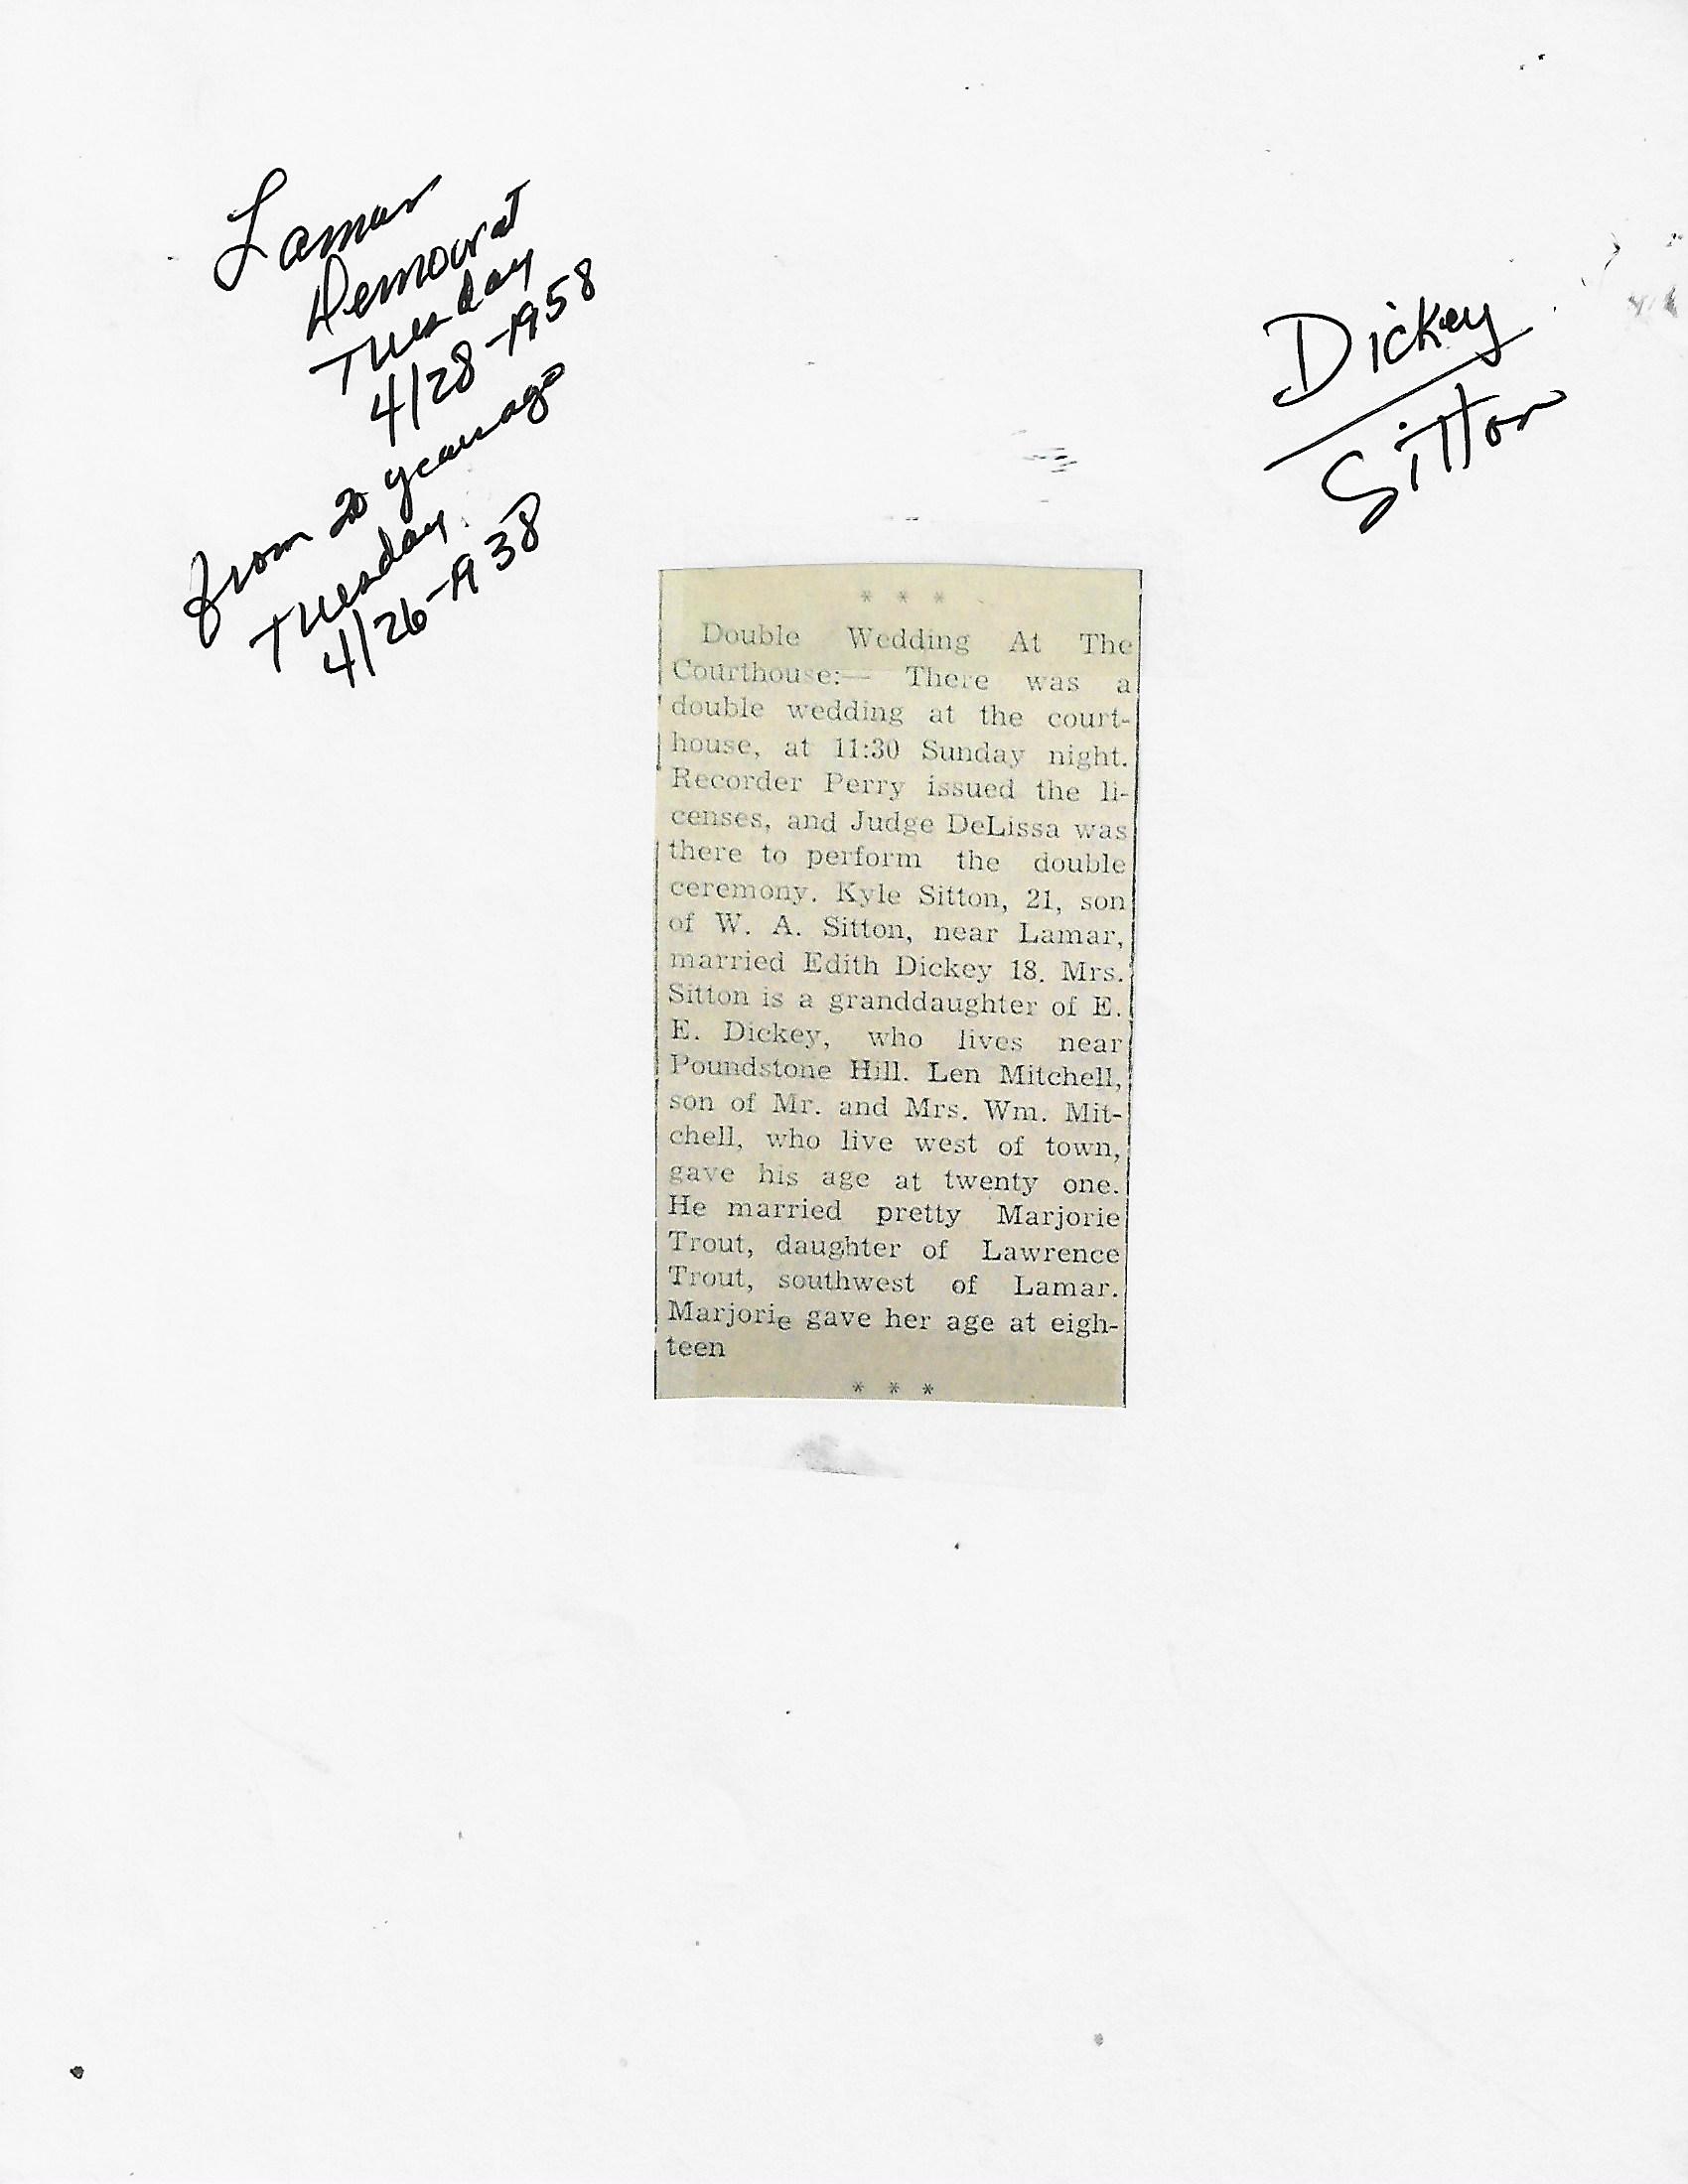 Lamar
Democrat
Tuesday
4/28-1958
from 20 years ago
Tuesday
4/26-1938
Dickey
Sitton
* * *
Double Wedding At The
Courthouse:— There was a
double wedding at the court-
house, at 11:30 Sunday night.
Recorder Perry issued the li-
censes, and Judge DeLissa was
there to perform the double
ceremony. Kyle Sitton, 21, son
of W. A. Sitton, near Lamar,
married Edith Dickey 18. Mrs.
Sitton is a granddaughter of E.
E. Dickey, who lives near
Poundstone Hill. Len Mitchell,
son of Mr. and Mrs. Wm. Mit-
chell, who live west of town,
gave his age at twenty one.
He married pretty Marjorie
Trout, daughter of Lawrence
Trout, southwest of Lamar.
Marjorie gave her age at eigh-
teen
* * *